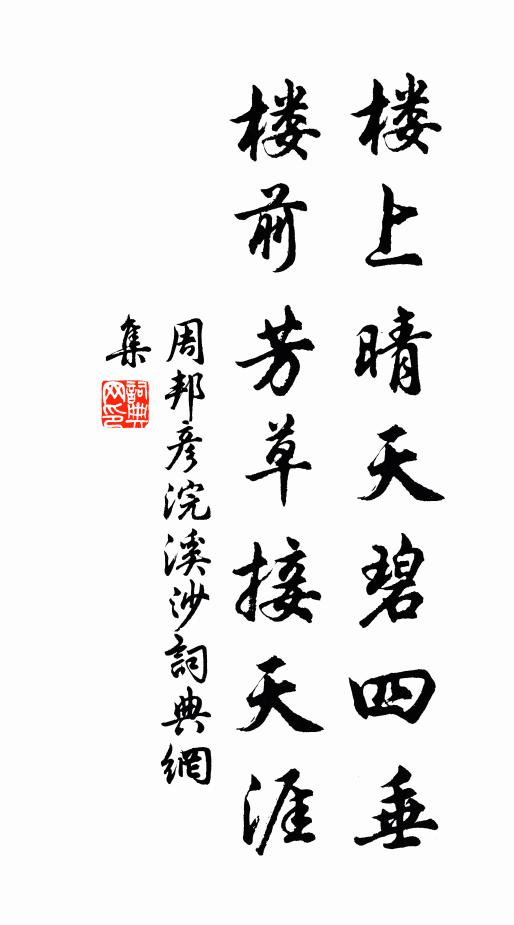 楼上晴天碧四垂
楼前芳草接天涯
周邦彦浣溪沙詞典網
集
詞典网印